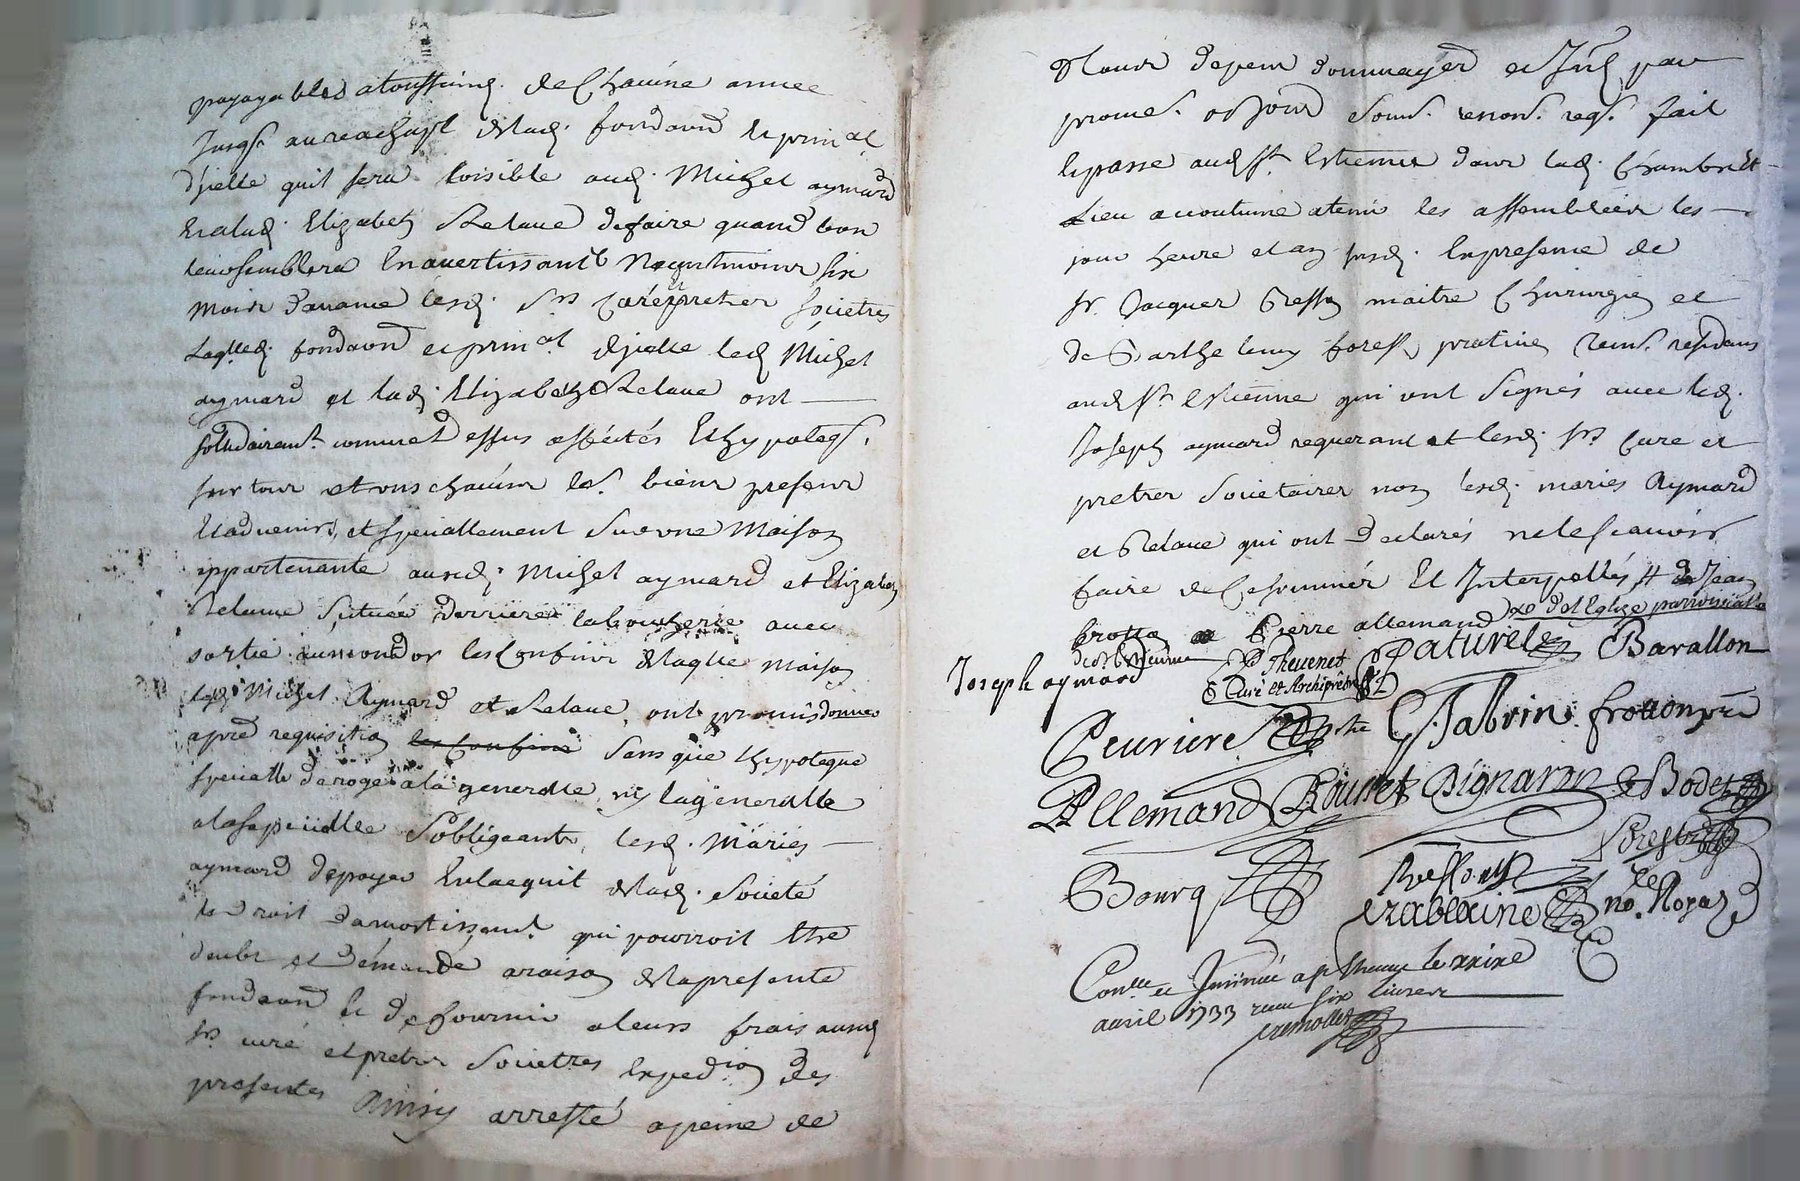 payayables a toussaincs. de Chacune annee
Jusqs. au reachapt de lad. fonda͠on du prin͠al
d'jcelle quil sera loisible aud. Michel aymard
Et alad. Elizabeth Relave de faire quand bon
leur semblera En avertissant Neantmoins six
mois davance lesd. Srs Curé & pretres Socie͠tres
Laq͠lle fonda͠on et prin͠al d'jcelle led Michel
aymard et lad. Elizabeth Relave ont
solidairemt. comme dessus affectés Et hypoteqs.
sur tous et uns chacuns les. biens presens
Et advenirs, et speciallement sur une Maison
appartenante ausd. Michel aymard et Elizabeth
Relaive, située derriere la boucherie avec
sortie au les Confins de laqlle maison
led. Michel Aymard et Relave, ont promis donner
apres requisition les Confins sans que Lhypoteque
specialle deroge a la generalle ny la generalle
a la specialle S'obligeants, lesd. Mariés
aymard de payer En lacquit de lad. Societé
le droit damortissemt. qui pourroit Etre
deubt et demandé a raison de la presente
fonda͠on Et de fournir a leurs frais ausd
Srs. curé et pretres Socie͠tres Expedi͠on des
presentes Ainsy arresté a peine de
tous depens dommages et Jnts par
promes. obligons soums. renons. reqs. fait
Et passé aud St. Estienne dans lad. Chambre Et
Lieu accoutumé a tenir les assemblées les
jour heure et an susd. En presence de
Sr. Jacques maitre Chirurgien et
de Barthelemy forest praticien residans
aud St. Estienne qui ont Signés avec led.
Joseph aymard requerant et lesd. Srs. Curé et
pretres Societaires non lesd. mariés Aymard
et Relave qui ont declarés ne le scavoir
faire de Ce sommés Et Interpellés, # de Jean
Pierre allemand xe d'ol'Eglise parroissialle
de St Etienne
Joseph aymard
Thevenet
Curé et Archiprêtre
Paturel
Barallon
Peurière ptre
C. Jabrin
frotton ptre
Allemand
Rouset
Pignaron
Bodet
Bourg
forest
Tezenas
no. Royal
Con͠lle et Jnsinué a St Etienne le xxixe
avril 1733 receu six livres